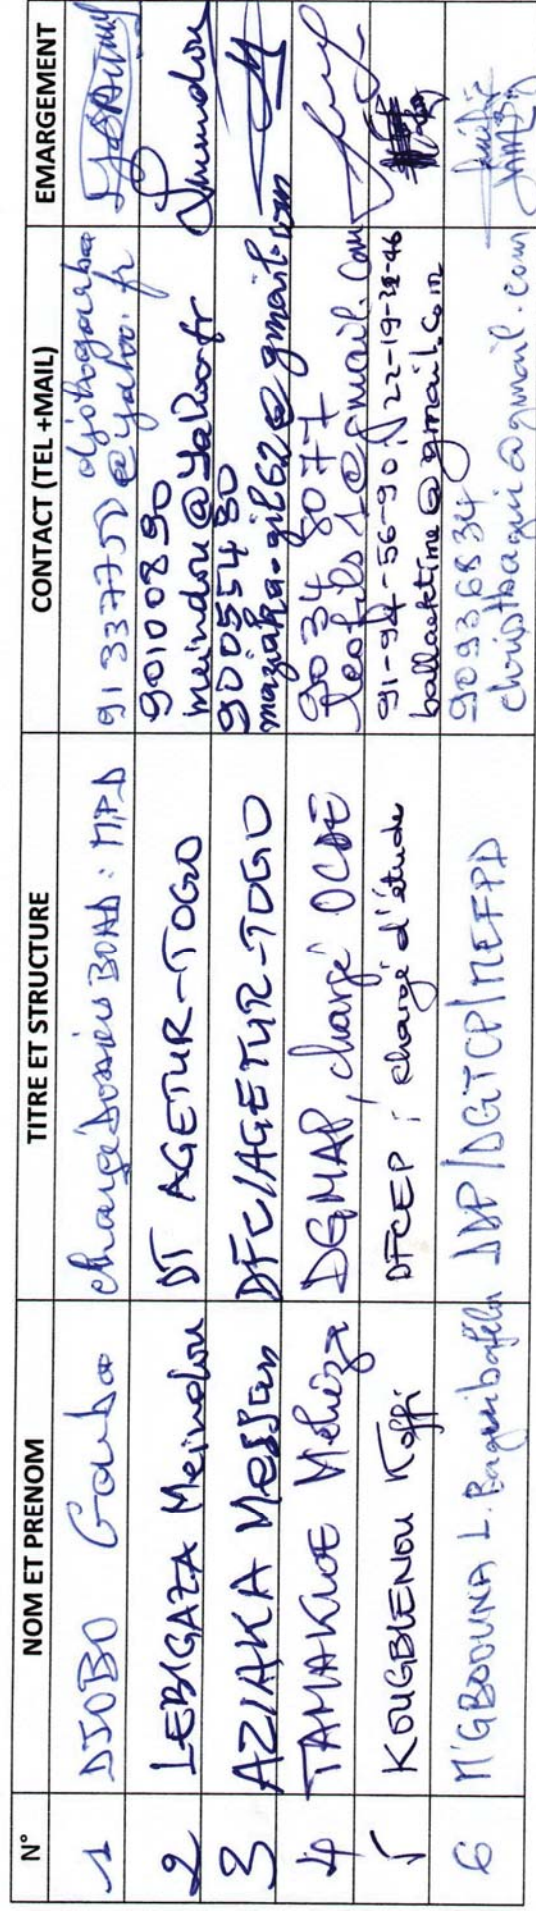 N° NOM ET PRENOM TITRE ET STRUCTURE CONTACT (TEL +MAIL) EMARGEMENT
1 DJOBO Garba chargé Dossiers BOAD : MPD 91 33 77 55 djobogarba
@yahoo.fr
2 LEBIGAZA Meindou DT AGETUR-TOGO 90100890
meindou@yahoo.fr
3 AZIAKA Messan DFC/AGETUR-TOGO 90055480
maziaka-gil62@gmail.com
4 TAMAKLOE Mehèza DGMAP, chargé OCDE 9034 8077
leofils1@gmail.com
5 KOUGBLENOU Koffi DFCEP ; chargé d'étude 91-94-56-90 / 22-19-32-46
ballacktime@gmail.com
6 M'GBOOUNA L. Bagnibafeln DDP/DGTCP/MEFPD 90936834
christbagni@gmail.com